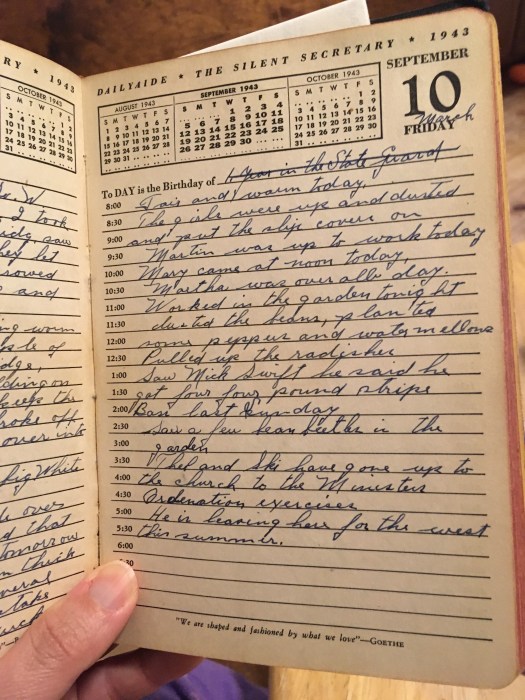 RY * 1943
OCTOBER 1943
S M T W T F S
DAILYAIDE * THE SILENT SECRETARY * 1943
AUGUST 1943
S M T W T F S
1 2 3 4 5 6 7
8 9 10 11 12 13 14
15 16 17 18 19 20 21
22 23 24 25 26 27 28
29 30 31
SEPTEMBER 1943
S M T W T F S
1 2 3 4
5 6 7 8 9 10 11
12 13 14 15 16 17 18
19 20 21 22 23 24 25
26 27 28 29 30
OCTOBER 1943
S M T W T F S
1 2
3 4 5 6 7 8 9
10 11 12 13 14 15 16
17 18 19 20 21 22 23
24 25 26 27 28 29 30
31
SEPTEMBER
10
March
FRIDAY
To DAY is the Birthday of 1 Year in the State Guard
8:00 Fair and warm today.
8:30 The girls were up and dusted
9:00 and put the slip covers on
9:30 Martin was up to work today
10:00 Mary came at noon today,
10:30 Martha was over all day.
11:00 Worked in the garden tonight
11:30 dusted the beans, planted
12:00 some peppers and watermellons
12:30 Pulled up the radishes
1:00 Saw Mick Swift he said he
1:30 got four four pound stripe
2:00 Bass last Sunday
2:30 Saw a few bean beetles in the
3:00 garden
3:30 and Ski have gone up to
4:00 the church to the Ministers
4:30 Ordenation exercises
5:00 He is leaving here for the west
5:30 this summer.
6:00
"We are shaped and fashioned by what we love"—GOETHE
I took
saw
they let
rowed
and
ng worm
ple of
dge,
ding on
keep the
broke off
over into
big White
over
d that
tomorrow
n thick
take